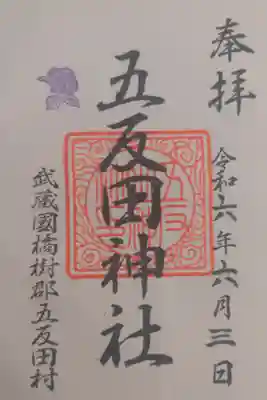 奉拝
令和六年六月三日
五反田神社
武蔵國橘樹郡五反田村